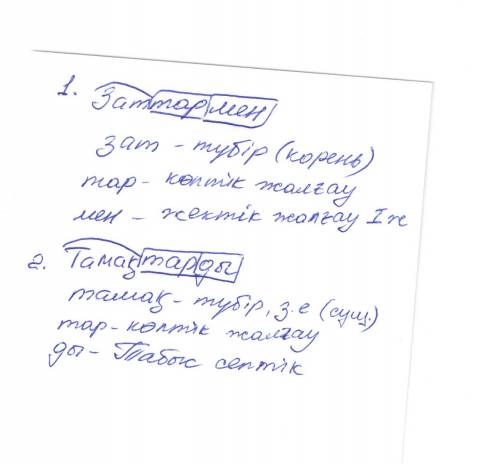 1. Заттармен
зат - түбір (корень)
тар - көптік жалғау
мен - жектік жалғау I ж
2. Тамақтарды
тамақ - түбір, з.е (сущ.)
тар - көптік жалғау
ды - Табыс септік